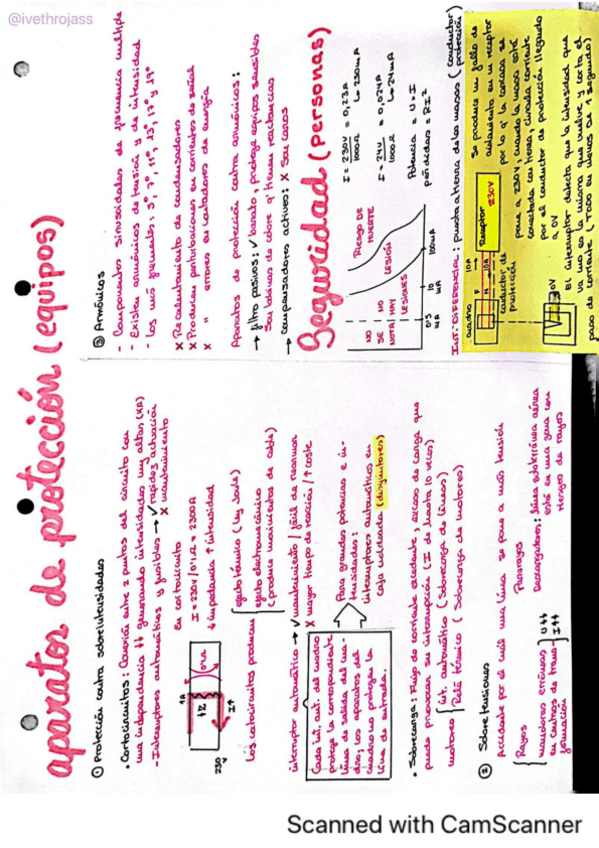 @ivethrojass
aparatos de protección (equipos)
① Protección contra sobreintensidades
· Cortocircuitos: Conexión entre 2 puntos del circuito con
una independancia ↓↓ generando intensidades muy altas (KA)
- Interruptores automáticos y fusibles → ✓ rapidez actuación
X mantenimiento
En cortocircuito
I = 230V/0'1Ω = 2300A
↓ impedancia ↑ intensidad
1A
230
V
↓Z
0'1Ω
I↑
Los cortocircuitos producen
efecto térmico (ley Joule)
efecto electromecánico
(produce movimientos de cable)
interruptor automático → ✓ mantenimiento / fácil de rearmar
X mayor tiempo de reacción / ↑ coste
Cada int. aut. del cuadro
protege la correspondiente
línea de salida del cua-
dro, los aparatos del
cuadro no protegen la
línea de entrada.
Para grandes potencias e in-
tensidades:
interruptores automáticos en
caja moldeada (disyuntores)
· Sobrecarga: Flujo de corriente excedente, exceso de carga que
puede provocar su interrupción (I de hasta 10 veces)
motores
int. automático (Sobrecarga de líneas)
Relé térmico (Sobrecarga de motores)
② Sobretensiones
Accidente por el cuál una línea se pone a más tensión
Rayos
Pararrayos
Descargadores: línea subterránea aérea
está en una zona con
riesgo de rayos
maniobras erróneas
en centros de trans-
formación
U↑↑
I↑↑
③ Armónicos
- Componentes sinusoidales de frecuencia múltiple
- Existen armónicos de tensión y de intensidad
- Los más frecuentes: 5º, 7º, 11º, 13º, 17º y 19º
X Recalentamiento de condensadores
X Producen perturbaciones en corrientes de señal
X " errores en contadores de energía
Aparatos de protección contra armónicos:
→ filtro pasivos: ✓ barato, protege equipos sensibles
Son bobinas de cobre q' tienen reactancias
→ compensadores activos: X Son caros
Seguridad (personas)
NO
SE
NOTA
NO
HAY
LESIONES
LESIÓN
RIESGO DE
MUERTE
0'5
mA
10
mA
100mA
I = 230V/1000Ω = 0,23A
↳ 230mA
I = 24V/1000Ω = 0,024A
↳ 24mA
Potencia = U·I
pérdidas = RI²
Int. DIFERENCIAL: puesta a tierra de las masas (conductor
protección)
cuadro
10A
F
N
10A
Receptor
230V
conductor de
protección
0V
Se produce un fallo de
aislamiento en un receptor
por lo q' la carcasa se
pone a 230V, cuando la masa está
conectada con tierra, circula corriente
por el conductor de protección llegando
a 0V
El interruptor detecta que la intensidad que
va no es la misma que vuelve y corta el
paso de corriente (TODO en menos de 1 segundo)
Scanned with CamScanner